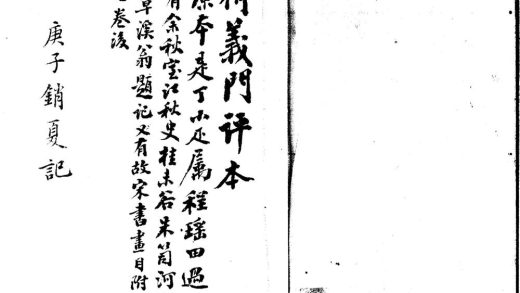 何義門評本
原本是丁小疋屬程瑤田過
有余秋室江秋史桂未谷朱笥河
覃溪翁題記又有故宋書畫目附
卷後
庚子銷夏記